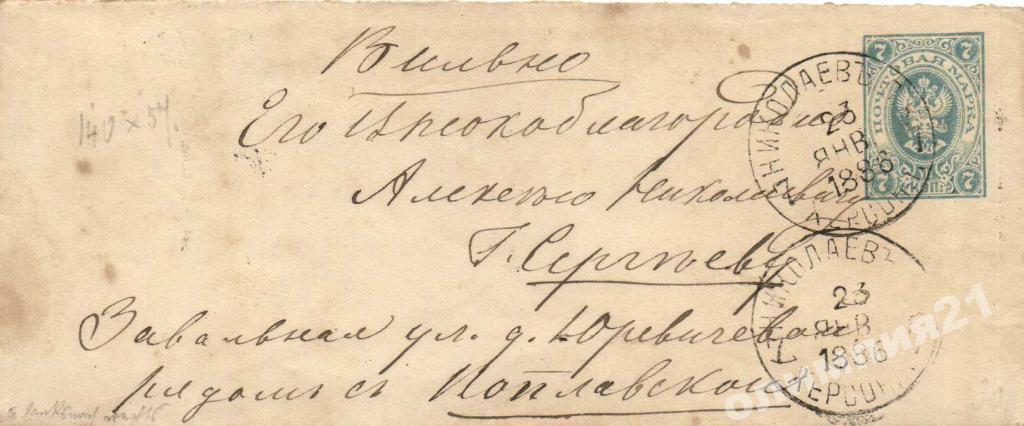 Вильно
Его Высокоблагородію
Алексѣю Николаевичу
Г. Сергѣеву
Завальная ул. д. Юревичевой
рядомъ съ Поплавской
140 x 54.
7 7
ПОЧТОВАЯ МАРКА
7 КОП. 7
НИКОЛАЕВЪ
23
ЯНВ
1886
ХЕРСОН
НИКОЛАЕВЪ
23
ЯНВ
1886
ХЕРСОН